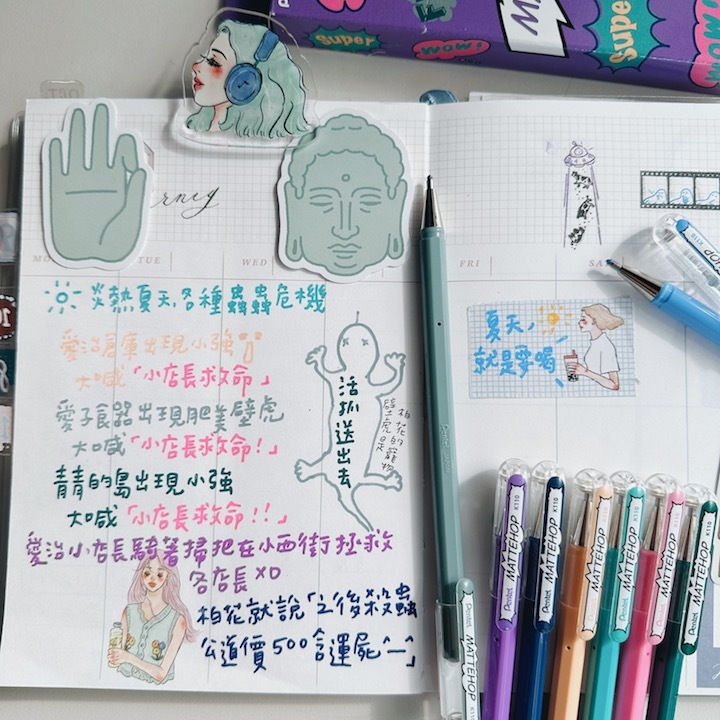 Super
WOW!
MATTE
Super
WOW!
rney
MO
TUE
WED
FRI
SA
火熱夏天,各種蟲蟲危機
愛治倉庫出現小強
大喊「小店長救命」
愛子食器出現肥美壁虎
大喊「小店長救命!」
青青的島出現小強
大喊「小店長救命!!」
愛治小店長騎著掃把在小西街拯救
各店長XD
柏花就說「以後殺蟲
公道價500含運屍^_^」
活抓送出去
柏花的寵物
壁虎是
夏天,
就是要喝
Pentel MATTEHOP K110
Pentel MATTEHOP K110
Pentel MATTEHOP K110
Pentel MATTEHOP K110
Pentel MATTEHOP K110
Pentel MATTEHOP K110
Pentel
K110